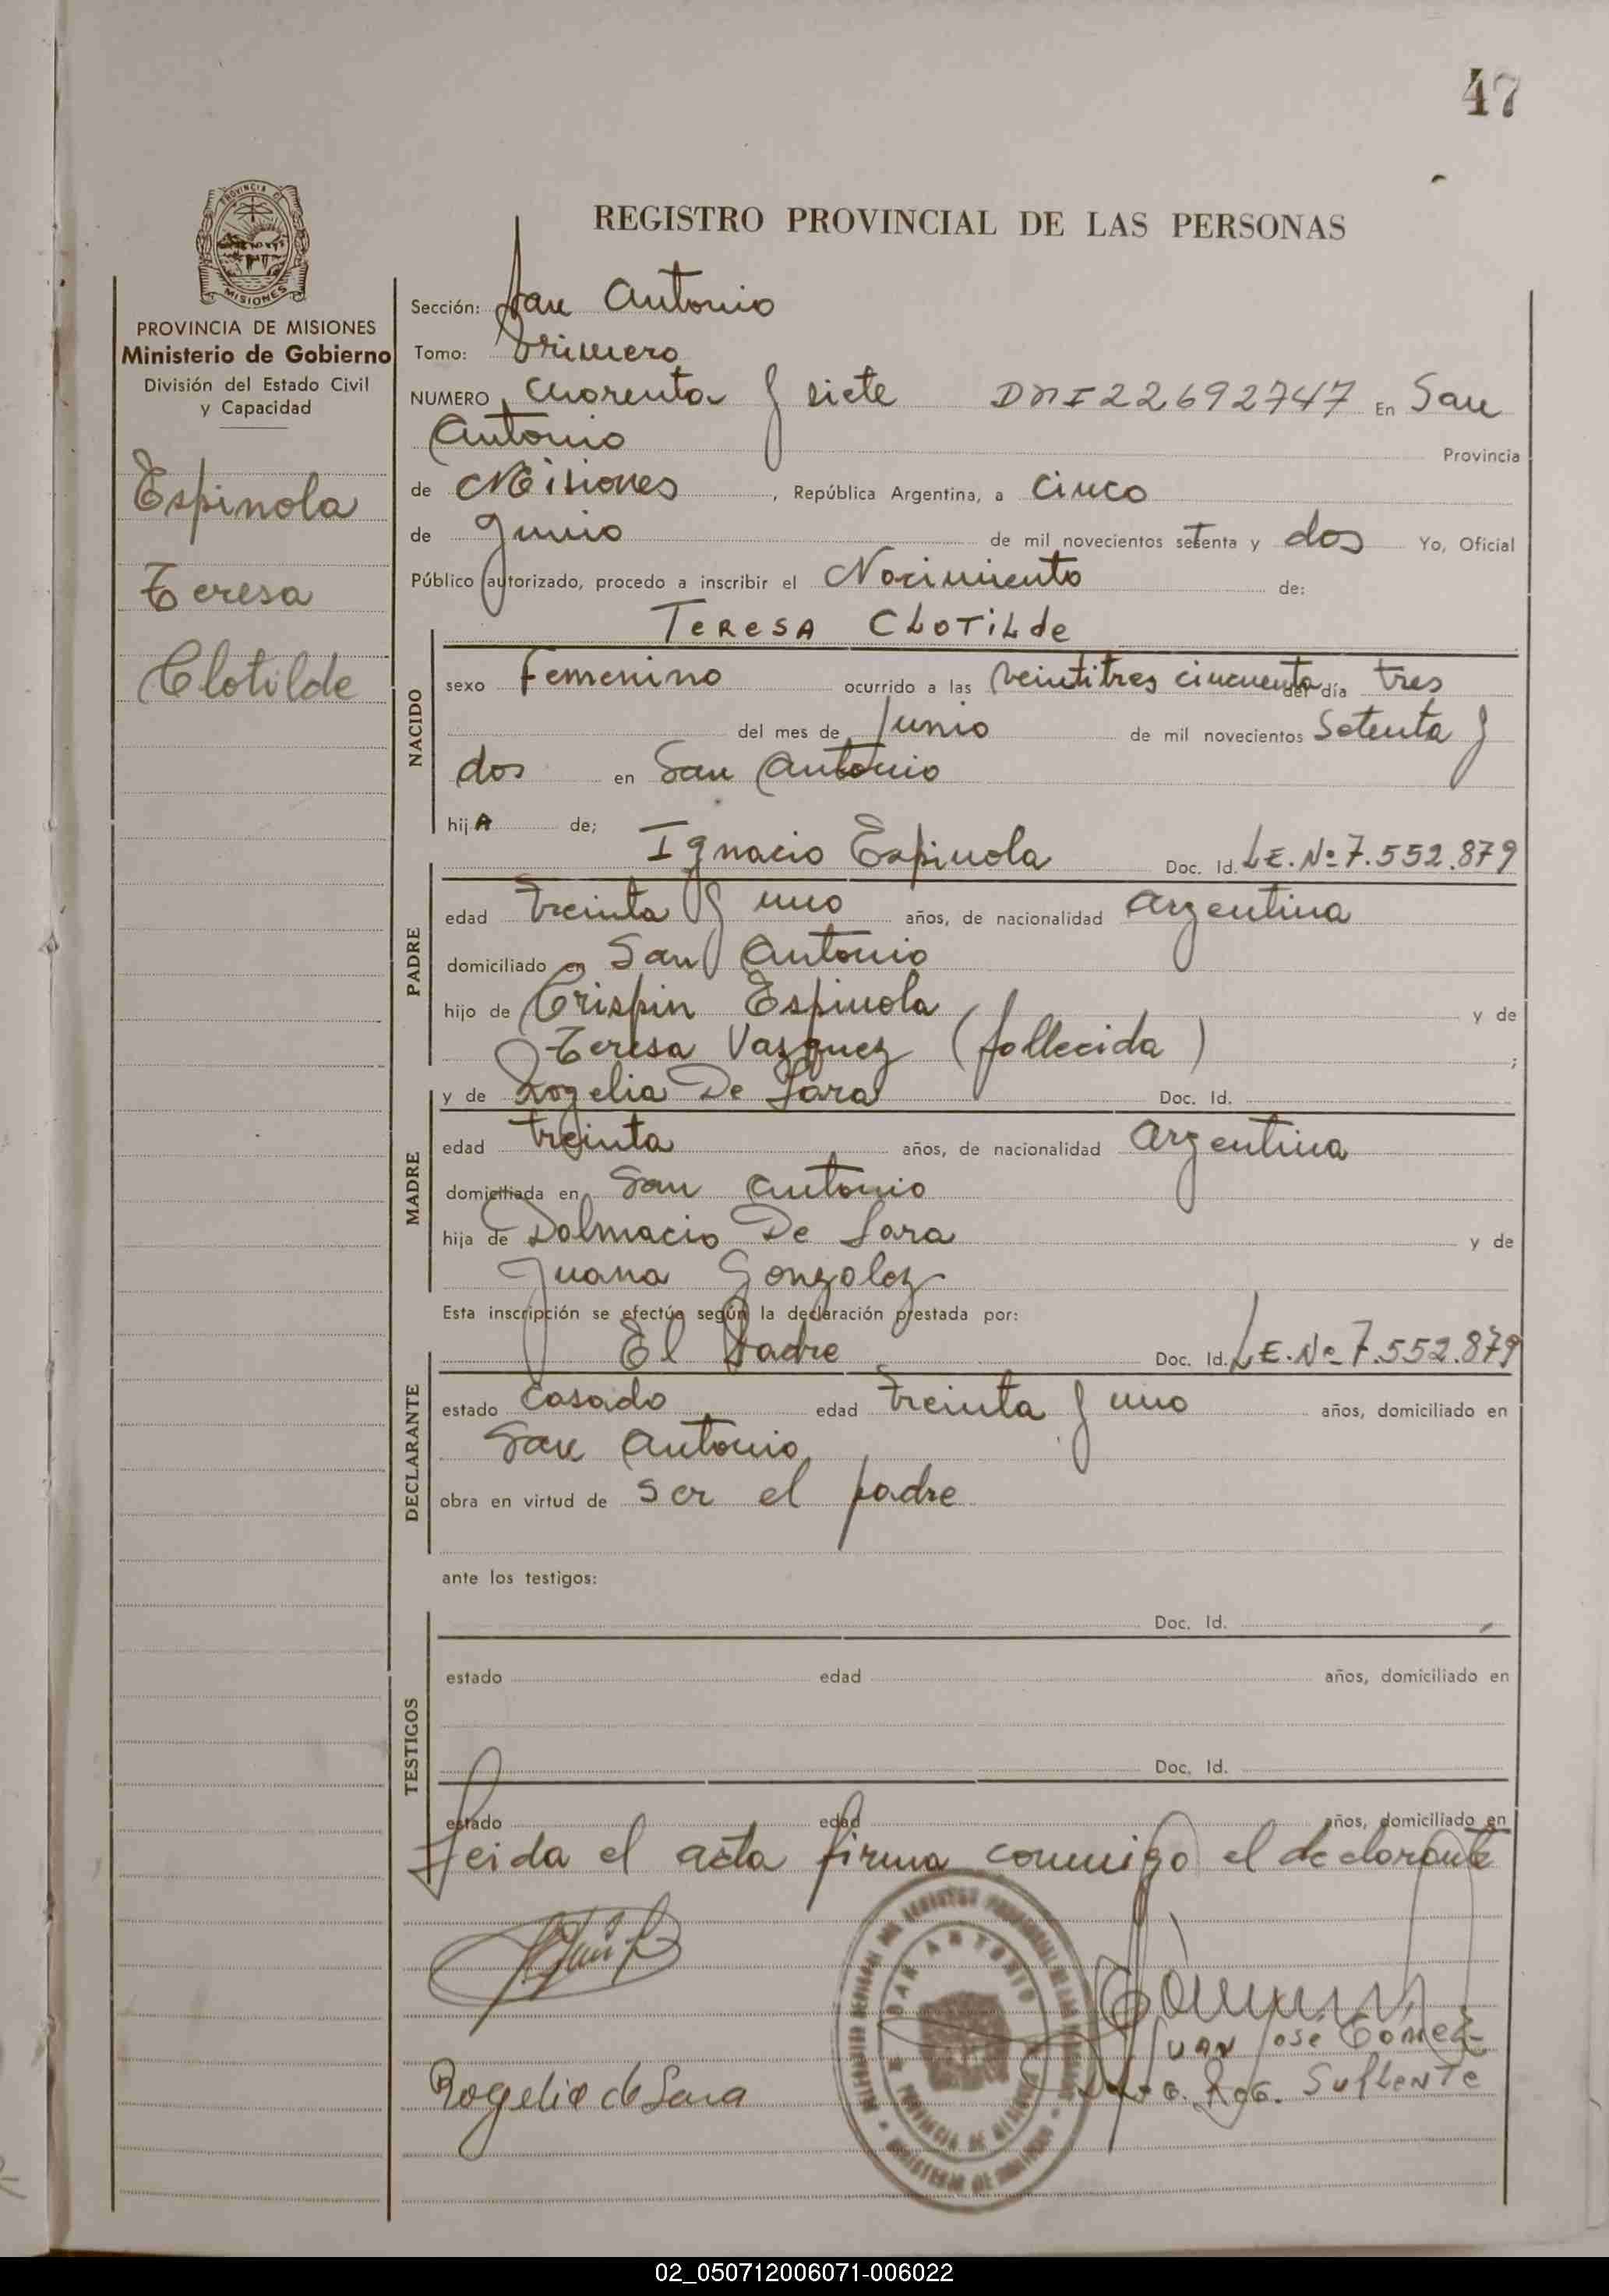 47
PROVINCIA DE MISIONES
REGISTRO PROVINCIAL DE LAS PERSONAS
PROVINCIA DE MISIONES
Ministerio de Gobierno
División del Estado Civil
y Capacidad
Espinola
Teresa
Clotilde
Sección: San Antonio
Tomo: Primero
NUMERO Cuarenta y siete DNI 22692747 En San
Antonio Provincia
de Misiones, República Argentina, a Cinco
de Junio de mil novecientos setenta y dos Yo, Oficial
Público autorizado, procedo a inscribir el Nacimiento de:
TERESA CLOTILde
NACIDO
sexo Femenino ocurrido a las veintitres cincuenta del día tres
del mes de Junio de mil novecientos Setenta y
dos en San Antonio
hijA de;
PADRE
Ignacio Espinola Doc. Id. L.E. Nº 7.552.879
edad treinta y uno años, de nacionalidad Argentina
domiciliado en San Antonio
hijo de Crispin Espinola y de
Teresa Vazquez (fallecida) ;
MADRE
y de Rogelia De Lara Doc. Id.
edad treinta años, de nacionalidad Argentina
domiciliada en San Antonio
hija de Dalmacio De Lara y de
Juana Gonzalez
Esta inscripción se efectúa según la declaración prestada por:
DECLARANTE
El Padre Doc. Id. L.E. Nº 7.552.879
estado Casado edad treinta y uno años, domiciliado en
San Antonio
obra en virtud de ser el padre
ante los testigos:
TESTIGOS
Doc. Id.
estado edad años, domiciliado en
Doc. Id.
estado edad años, domiciliado en
Leida el acta firma conmigo el declarante
SAN ANTONIO
PROVINCIA DE MISIONES
Juan José Gómez
Suplente
Rogelia de Lara
02_050712006071-006022